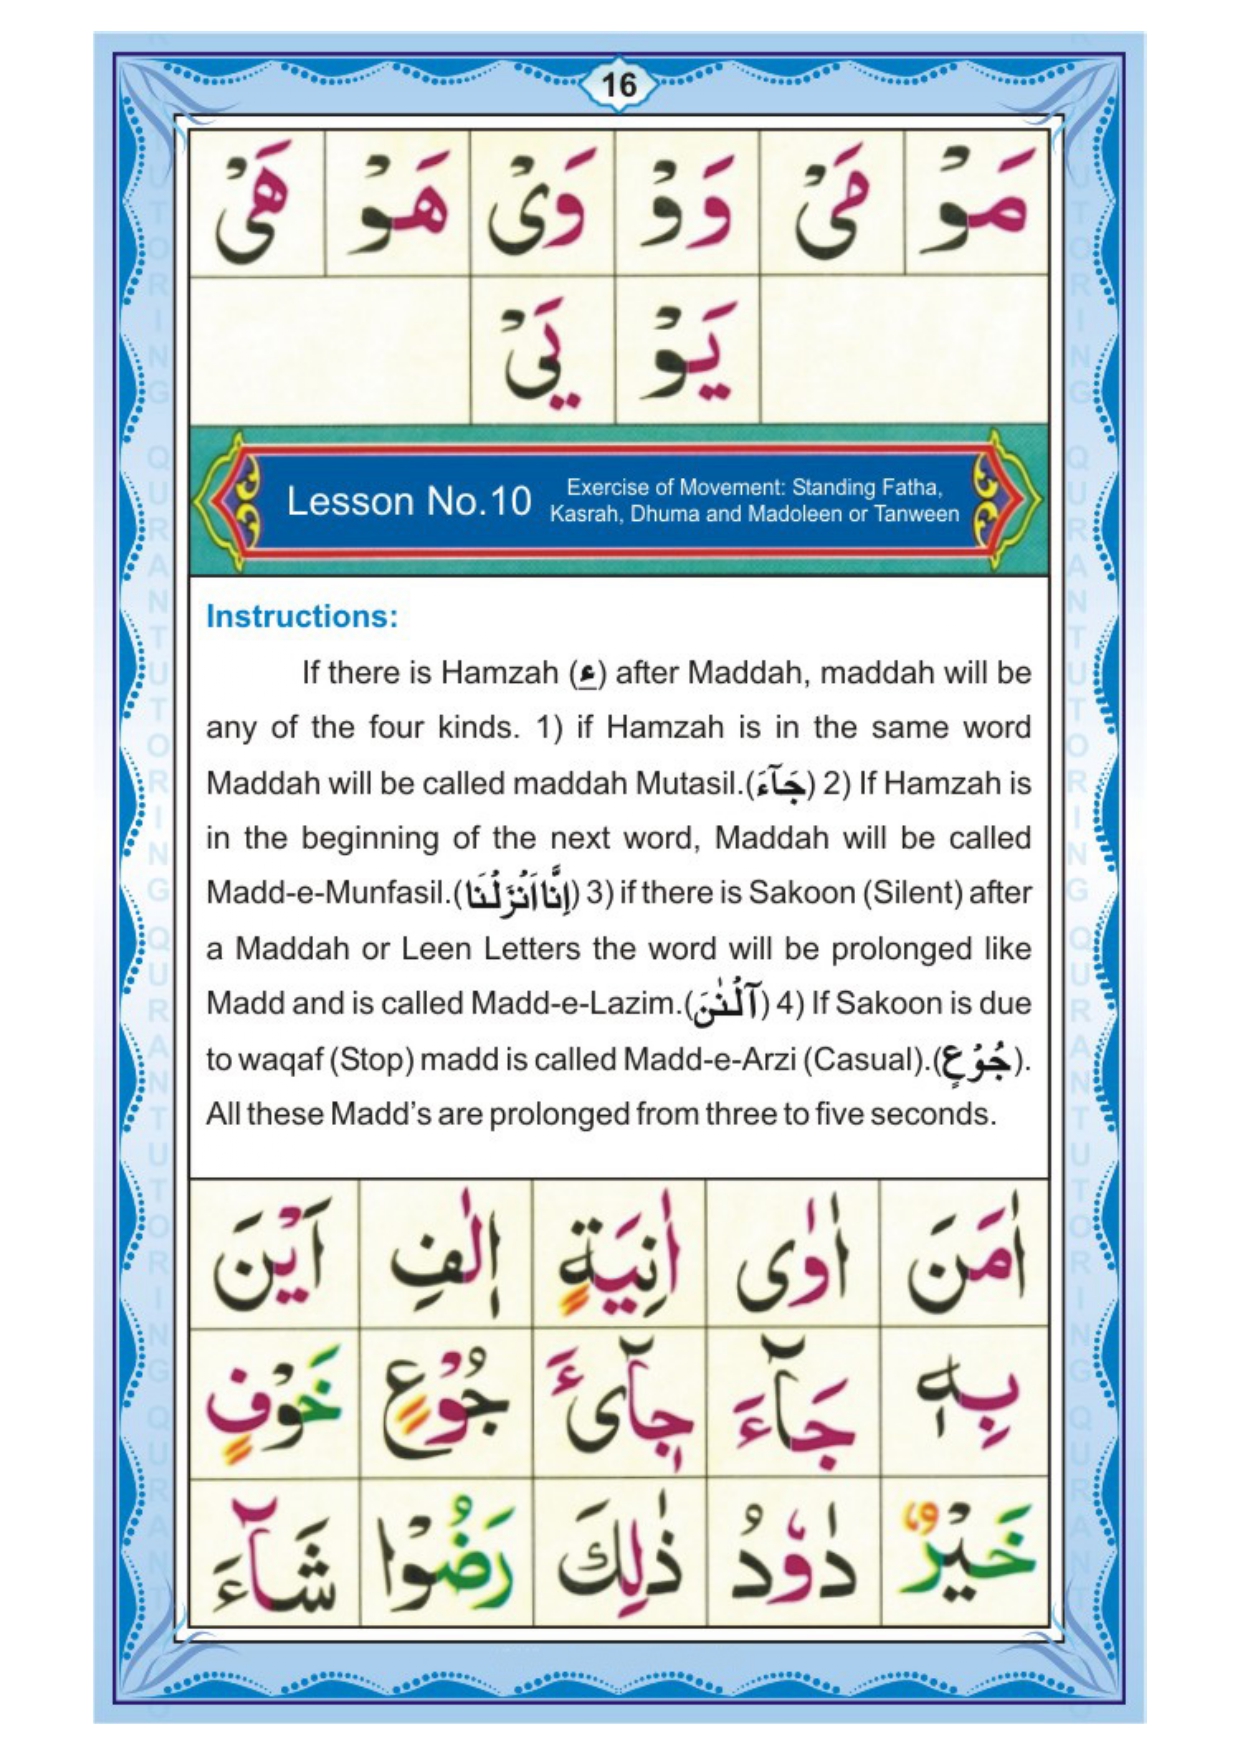 16
مَوْ مَیْ وَوْ وَیْ هَوْ هَیْ
یَوْ یَیْ
Lesson No.10
Exercise of Movement: Standing Fatha,
Kasrah, Dhuma and Madoleen or Tanween
Instructions:
If there is Hamzah (ء) after Maddah, maddah will be
any of the four kinds. 1) if Hamzah is in the same word
Maddah will be called maddah Mutasil.(جَآءَ) 2) If Hamzah is
in the beginning of the next word, Maddah will be called
Madd-e-Munfasil.(اِنَّا اَنْزَلْنَا) 3) if there is Sakoon (Silent) after
a Maddah or Leen Letters the word will be prolonged like
Madd and is called Madd-e-Lazim.(آلْـٰٔنَ) 4) If Sakoon is due
to waqaf (Stop) madd is called Madd-e-Arzi (Casual).(جُوْعٍ).
All these Madd's are prolonged from three to five seconds.
اٰمَنَ اٰوٰی اٰنِیَةٍ اٖلٰفِ اَیْنَ
بِهٖ جَآءَ جِآیْٓءَ جُوْعٍ خَوْفٍ
خَیْرٌ دٰوٗدُ ذٰلِكَ رَضُوْا شَآءَ
QURAN TUTORING